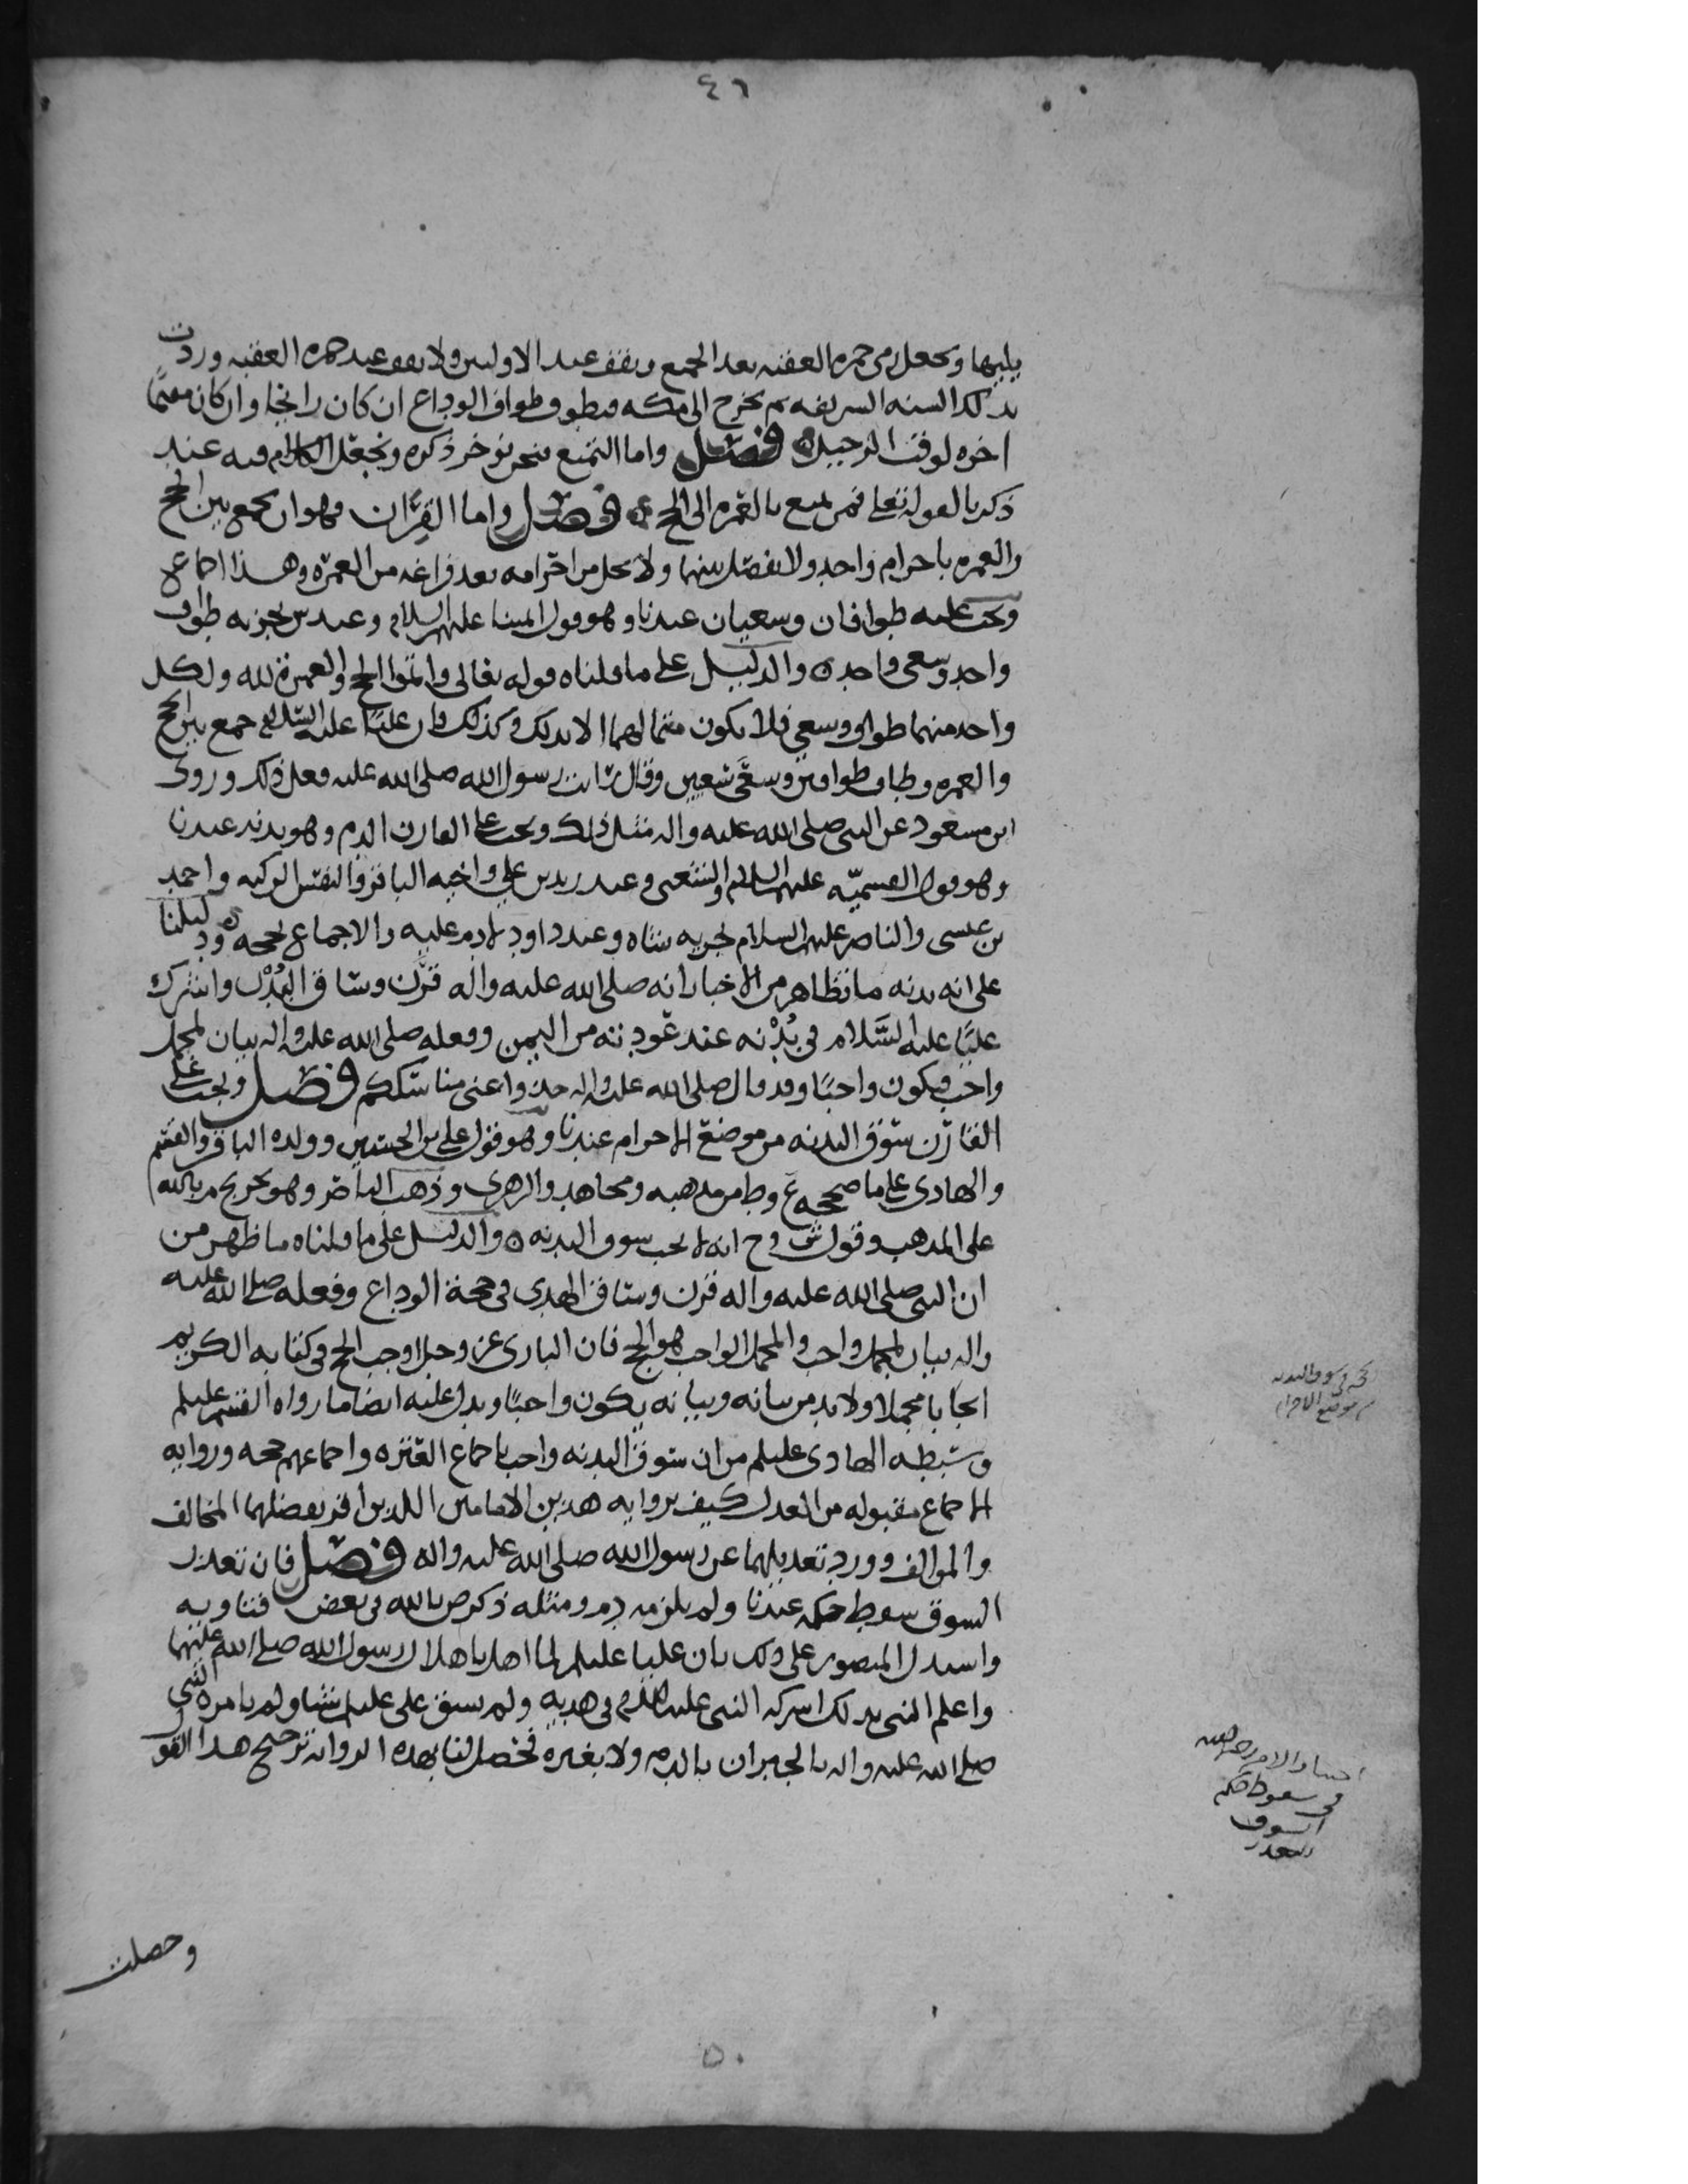 ٤٦
يليها ويجعل رمي جمرة العقبه بعد الجميع ويقف عند الاوليين ولا يقف عند جمرة العقبه وردت
بذلك السنه الشريفه ثم يخرج الى مكه فيطوف طواف الوداع ان كان رايحا وان كان مقيما
اخره لوقت الرحيل فصل واما التمتع فنحن نوخر ذكره ونجعل الكلام فيه عند
ذكرنا لقوله تعلى فمن تمتع بالعمره الى الحج فصل واما القِرَان فهو ان يجمع بين الحج
والعمره باحرام واحد ولا يفصل بينهما ولا يحل من احرامه بعد فراغه من العمره وهذا اجماع
ويجب عليه طوافان وسعيان عندنا وهو قول ايمتنا عليهم السلام وعند س يجزيه طواف
واحد وسعي واحد والدليل على ما قلناه قوله تعالى واتموا الحج والعمرة لله ولكل
واحد منهما طواف وسعي فلا يكون متما لهما الا بذلك وكذلك فان عليًا عليه السلام جمع بين الحج
والعمره وطاف طوافين وسعى سعيين وقال رايت رسول الله صلى الله عليه فعل ذلك وروى
ابن مسعود عن النبي صلى الله عليه واله مثل ذلك ويجب على القارن الدم وهو بدنه عندنا
وهو قول القسميّه عليهم السلام والشعبي وعند زيد بن علي واخيه الباقر والنفس الزكيه واحمد
بن عيسى والناصر عليهم السلام تجزيه شاه وعند داود لا دم عليه والاجماع يحجه ودليلنا
على انه بدنه ما تظاهر من الاخبار انه صلى الله عليه واله قَرَن وساق البُدْن واشرك
عليًا عليه السَّلام في بُدْنه عند عودته من اليمن وفعله صلى الله عليه واله بيان لمجمل
واجب فيكون واجبًا وقد قال صلى الله عليه واله خذوا عني مناسككم فصل ويجب على
القارن سَوْق البدنه من موضع الاحرام عندنا وهو قول علي بن الحسين وولده الباقر والقسم
والهادي على ما صححه ع وط من مذهبه ومجاهد والزهري وذهب الناصر وهو تخريج م بالله
على المذهب وقول ش وح انه لا يجب سوق البدنه والدليل على ما قلناه ما ظهر من
ان النبي صلى الله عليه واله قرن وساق الهدي في حجة الوداع وفعله صلى الله عليه
واله بيان لمجمل واجب والمجمل الواجب هو الحج فان الباري عز وجل اوجب الحج في كتابه الكريم
ايجابا مجملا ولا بد من بيانه وبيانه يكون واجبًا ويدل عليه ايضا ما رواه القسم عليلم
وسبطه الهادي عليلم من ان سوق البدنه واجب باجماع العتره واجماعهم حجه وروايه
الاجماع مقبوله من العدل كيف بروايه هذين الامامين اللذين اقر بفضلهما المخالف
والموالف وورد تعديلهما عن رسول الله صلى الله عليه واله فصل فان تعذر
السوق سقط حكمه عندنا ولم يلزمه دم ومثله ذكر ص بالله في بعض فتاويه
واستدل المنصور على ذلك بان عليا عليلم لما اهل باهلال رسول الله صلى الله عليهما
واعلم النبي بذلك اشركه النبي عليه السلام في هديه ولم يسق على عليلم شيا ولم يامره النبي
صلى الله عليه واله بالجبران بالدم ولا بغيره فحصل لنا بهذه الروايه ترجيح هذا القول
حجه في سوق البدنه
من موضع الاحرام
اختيار الامام رحمه الله
في سقوط حكم
السوق
للتعذر
وحصلت
٥٠